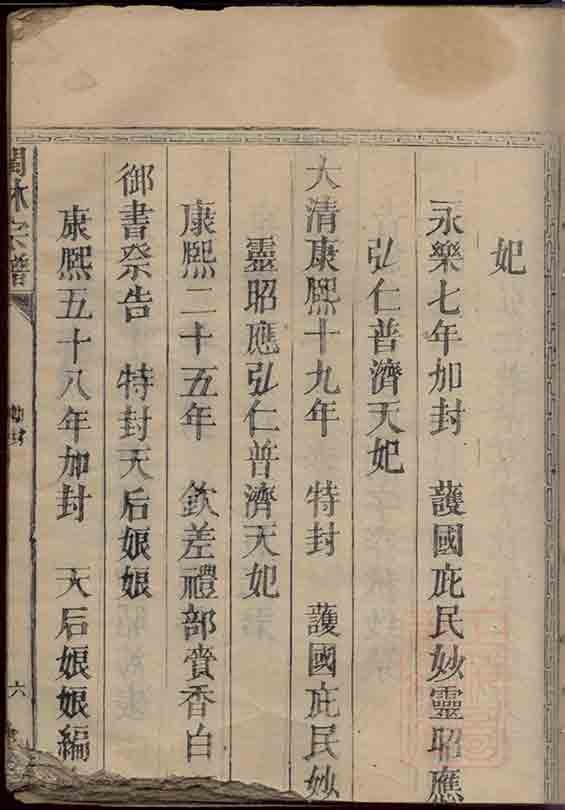 妃
永樂七年加封　護國庇民妙靈昭應
弘仁普濟天妃
大清康熙十九年　特封　護國庇民妙
靈昭應弘仁普濟天妃
康熙二十五年　欽差禮部賫香白
御書祭告　特封天后娘娘
康熙五十八年加封　天后娘娘編
林宗譜
六